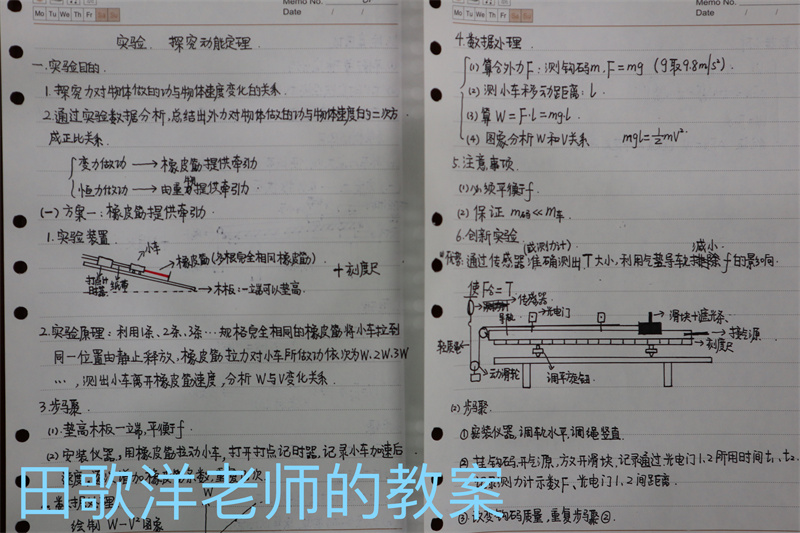 Memo No.
Date / /
Mo Tu We Th Fr Sa Su
实验. 探究动能定理.
一.实验目的.
1.探究力对物体做的功与物体速度变化的关系.
2.通过实验数据分析,总结出外力对物体做的功与物体速度的二次方
成正比关系.
变力做功 → 橡皮筋提供牵引力
恒力做功 → 由重物提供牵引力.
(一)方案一:橡皮筋提供牵引力.
1.实验装置
小车
橡皮筋(多根完全相同橡皮筋)
+刻度尺
打点计时器
纸带
木板:一端可以垫高.
2.实验原理:利用1条、2条、3条…规格完全相同的橡皮筋将小车拉到
同一位置由静止释放,橡皮筋拉力对小车所做功依次为W.2W.3W
…,测出小车离开橡皮筋速度,分析W与V变化关系.
3.步骤.
(1).垫高木板一端,平衡f.
(2)安装仪器,用橡皮筋拉动小车,打开打点记时器,记录小车加速后
绘制W-V²图象
W
Memo No.
Date / /
Mo Tu We Th Fr Sa Su
4.数据处理.
(1)算合外力F:测钩码m,F=mg (g取9.8m/s²).
(2)测小车移动距离:l.
(3)算W=F·l=mgl.
(4)图象分析W和V关系 mgl=½mV².
5.注意事项.
(1)必须平衡f.
(2)保证m码≪m车.
6.创新实验
(或测力计) 减小
通过传感器准确测出T大小,利用气垫导轨排除f的影响.
使F合=T
传感器
导轨
光电门
滑块+遮光条
接气源
刻度尺
轻质绳
动滑轮
调平旋钮
(2)步骤.
①安装仪器,调轨水平,调绳竖直.
②挂钩码,开气源,放开滑块,记录通过光电门1.2所用时间t₁、t₂.
记录测力计示数F、光电门1.2间距离.
③改变钩码质量,重复步骤②.
田歌洋老师的教案